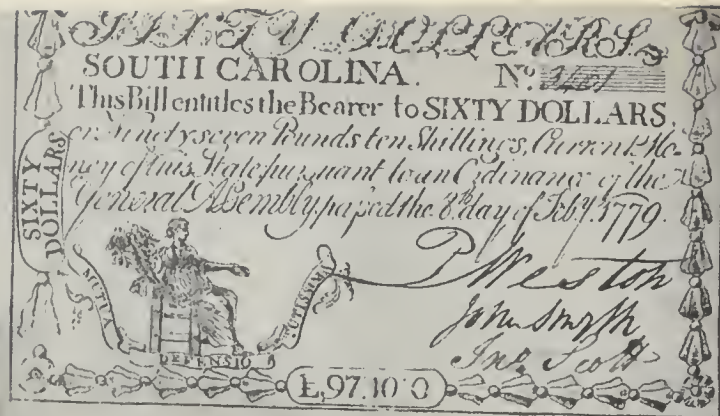 DOLLARS
SOUTH CAROLINA. No.
This Bill entitles the Bearer to SIXTY DOLLARS,
or Ninety seven Pounds ten Shillings, Current Mo-
ney of this State pursuant to an Ordinance of the
General Assembly, passed the 8th day of Feby. 1779.
SIXTY
DOLLARS
P Weston
John Smyth
Jno. Scott
MUTUA
DEFENSIO
TUTISSIMA
£,97.10.0